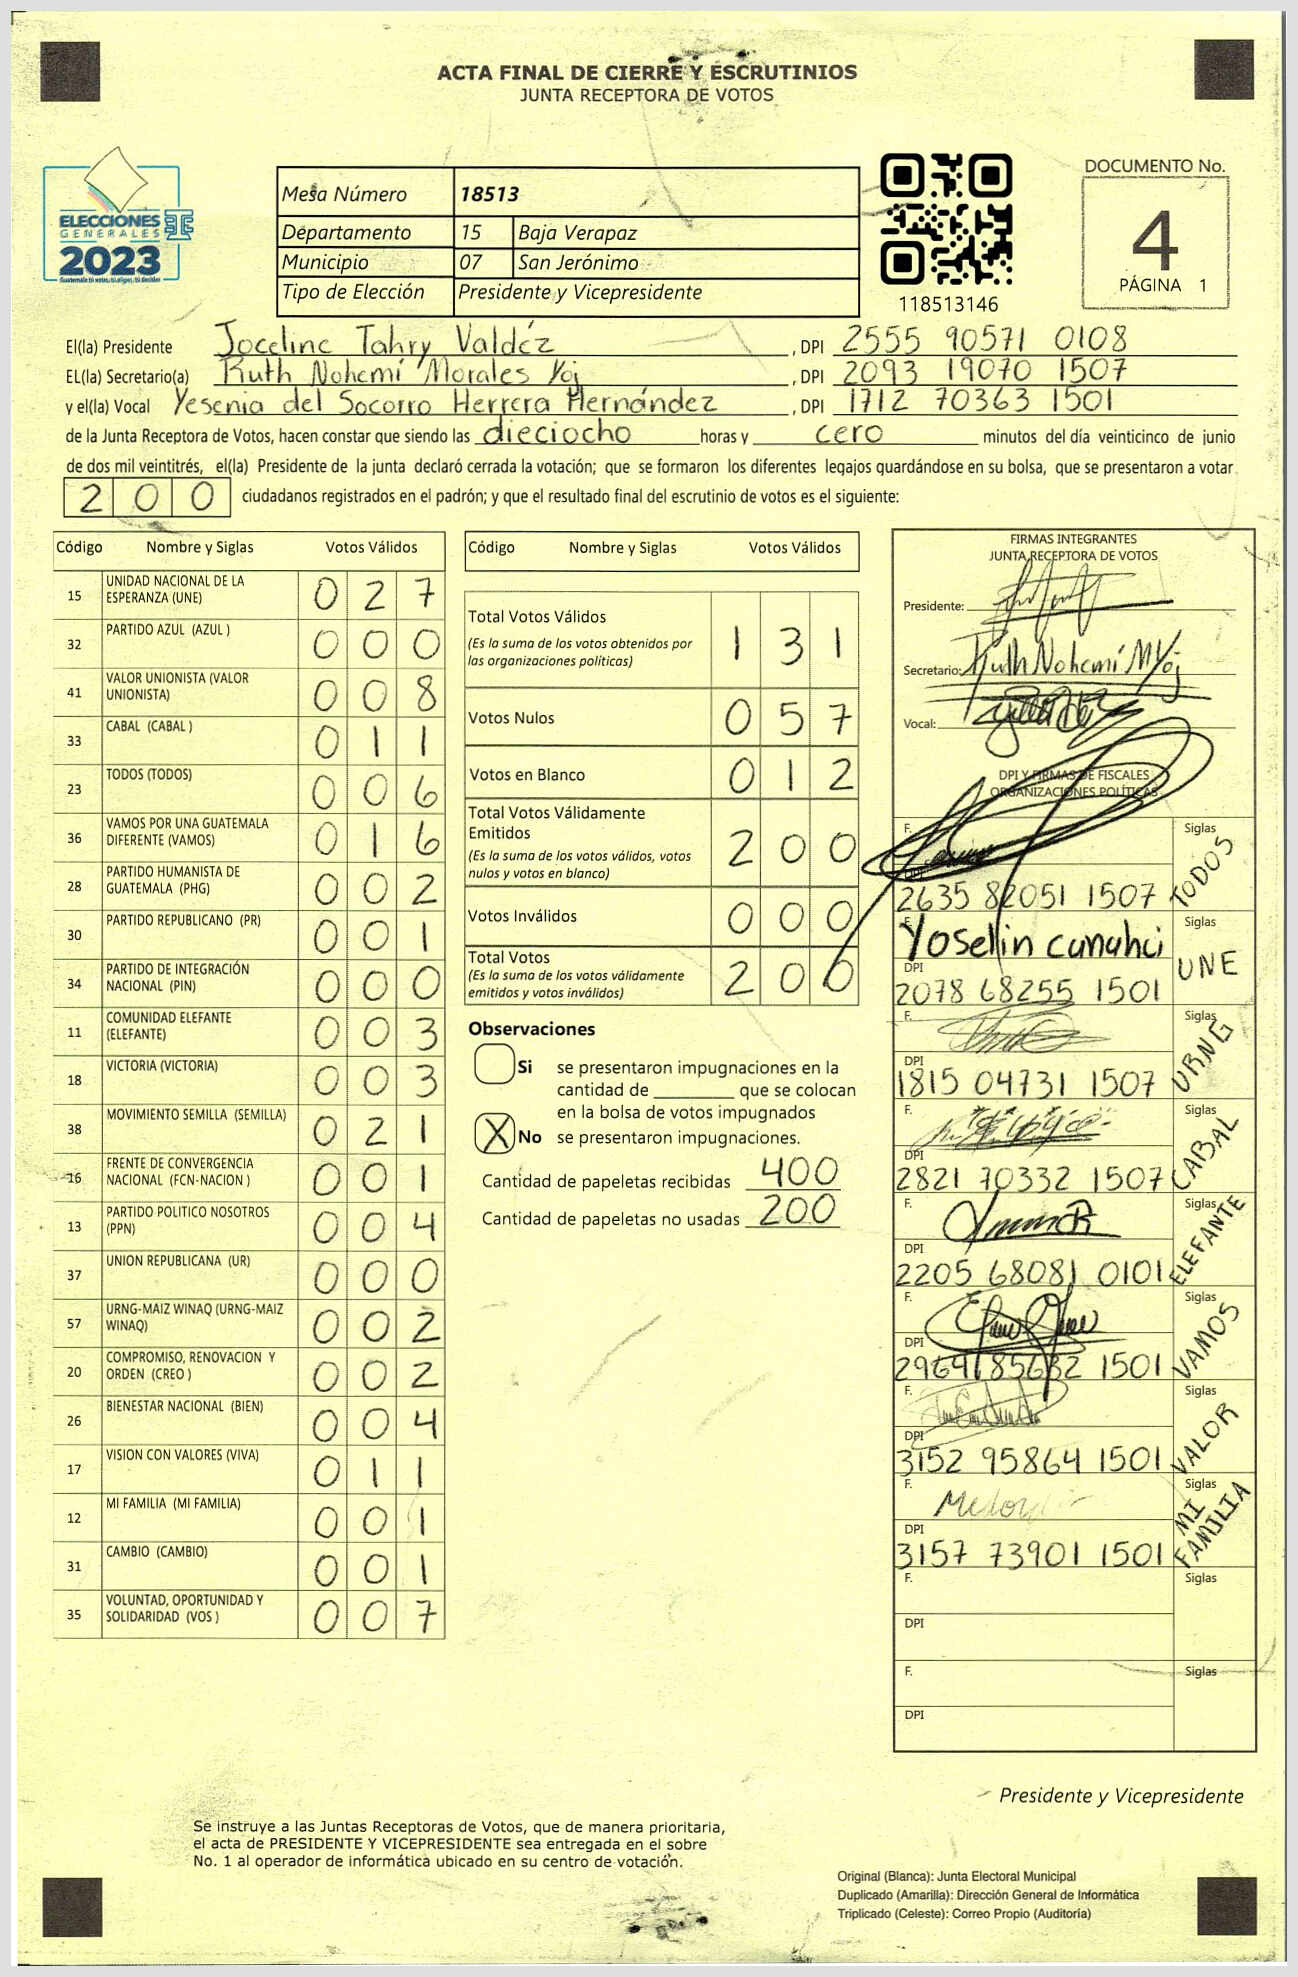 ACTA FINAL DE CIERRE Y ESCRUTINIOS
JUNTA RECEPTORA DE VOTOS
ELECCIONES
GENERALES
2023
Mesa Número 18513
Departamento 15 Baja Verapaz
Municipio 07 San Jerónimo
Tipo de Elección Presidente y Vicepresidente
118513146
DOCUMENTO No.
4
PÁGINA 1
El(la) Presidente Joceline Tahry Valdéz, DPI 2555 90571 0108
EL(la) Secretario(a) Ruth Nohemí Morales Yoj, DPI 2093 19070 1507
y el(la) Vocal Yesenia del Socorro Herrera Hernández, DPI 1712 70363 1501
de la Junta Receptora de Votos, hacen constar que siendo las dieciocho horas y cero minutos del día veinticinco de junio
de dos mil veintitrés, el(la) Presidente de la junta declaró cerrada la votación; que se formaron los diferentes legajos guardándose en su bolsa, que se presentaron a votar
200 ciudadanos registrados en el padrón; y que el resultado final del escrutinio de votos es el siguiente:
Código Nombre y Siglas Votos Válidos
15 UNIDAD NACIONAL DE LA ESPERANZA (UNE) 027
32 PARTIDO AZUL (AZUL ) 000
41 VALOR UNIONISTA (VALOR UNIONISTA) 008
33 CABAL (CABAL ) 011
23 TODOS (TODOS) 006
36 VAMOS POR UNA GUATEMALA DIFERENTE (VAMOS) 016
28 PARTIDO HUMANISTA DE GUATEMALA (PHG) 002
30 PARTIDO REPUBLICANO (PR) 001
34 PARTIDO DE INTEGRACIÓN NACIONAL (PIN) 000
11 COMUNIDAD ELEFANTE (ELEFANTE) 003
18 VICTORIA (VICTORIA) 003
38 MOVIMIENTO SEMILLA (SEMILLA) 021
16 FRENTE DE CONVERGENCIA NACIONAL (FCN-NACION ) 001
13 PARTIDO POLITICO NOSOTROS (PPN) 004
37 UNION REPUBLICANA (UR) 000
57 URNG-MAIZ WINAQ (URNG-MAIZ WINAQ) 002
20 COMPROMISO, RENOVACION Y ORDEN (CREO ) 002
26 BIENESTAR NACIONAL (BIEN) 004
17 VISION CON VALORES (VIVA) 011
12 MI FAMILIA (MI FAMILIA) 001
31 CAMBIO (CAMBIO) 001
35 VOLUNTAD, OPORTUNIDAD Y SOLIDARIDAD (VOS ) 007
Código Nombre y Siglas Votos Válidos
Total Votos Válidos 131
(Es la suma de los votos obtenidos por
las organizaciones políticas)
Votos Nulos 057
Votos en Blanco 012
Total Votos Válidamente
Emitidos 200
(Es la suma de los votos válidos, votos
nulos y votos en blanco)
Votos Inválidos 000
Total Votos 200
(Es la suma de los votos válidamente
emitidos y votos inválidos)
Observaciones
Si se presentaron impugnaciones en la
cantidad de ________ que se colocan
en la bolsa de votos impugnados
X No se presentaron impugnaciones.
Cantidad de papeletas recibidas 400
Cantidad de papeletas no usadas 200
FIRMAS INTEGRANTES
JUNTA RECEPTORA DE VOTOS
Presidente:
Secretario: Ruth Nohemí M Yoj
Vocal:
DPI Y FIRMAS DE FISCALES
ORGANIZACIONES POLÍTICAS
F. Siglas
DPI 2635 82051 1507 TODOS
F. Yosellin Siglas
DPI 2078 68255 1501 UNE
F. Siglas
DPI 1815 04731 1507 URNG
F. Siglas
DPI 2821 70332 1507 CABAL
F. Siglas
DPI 2205 68081 0101 ELEFANTE
F. Siglas
DPI 1501 VAMOS
F. Siglas
DPI 3152 95864 1501 VALOR
F. Siglas
DPI 3157 73901 1501 MI FAMILIA
F. Siglas
DPI
F. Siglas
DPI
Presidente y Vicepresidente
Se instruye a las Juntas Receptoras de Votos, que de manera prioritaria,
el acta de PRESIDENTE Y VICEPRESIDENTE sea entregada en el sobre
No. 1 al operador de informática ubicado en su centro de votación.
Original (Blanca): Junta Electoral Municipal
Duplicado (Amarilla): Dirección General de Informática
Triplicado (Celeste): Correo Propio (Auditoría)